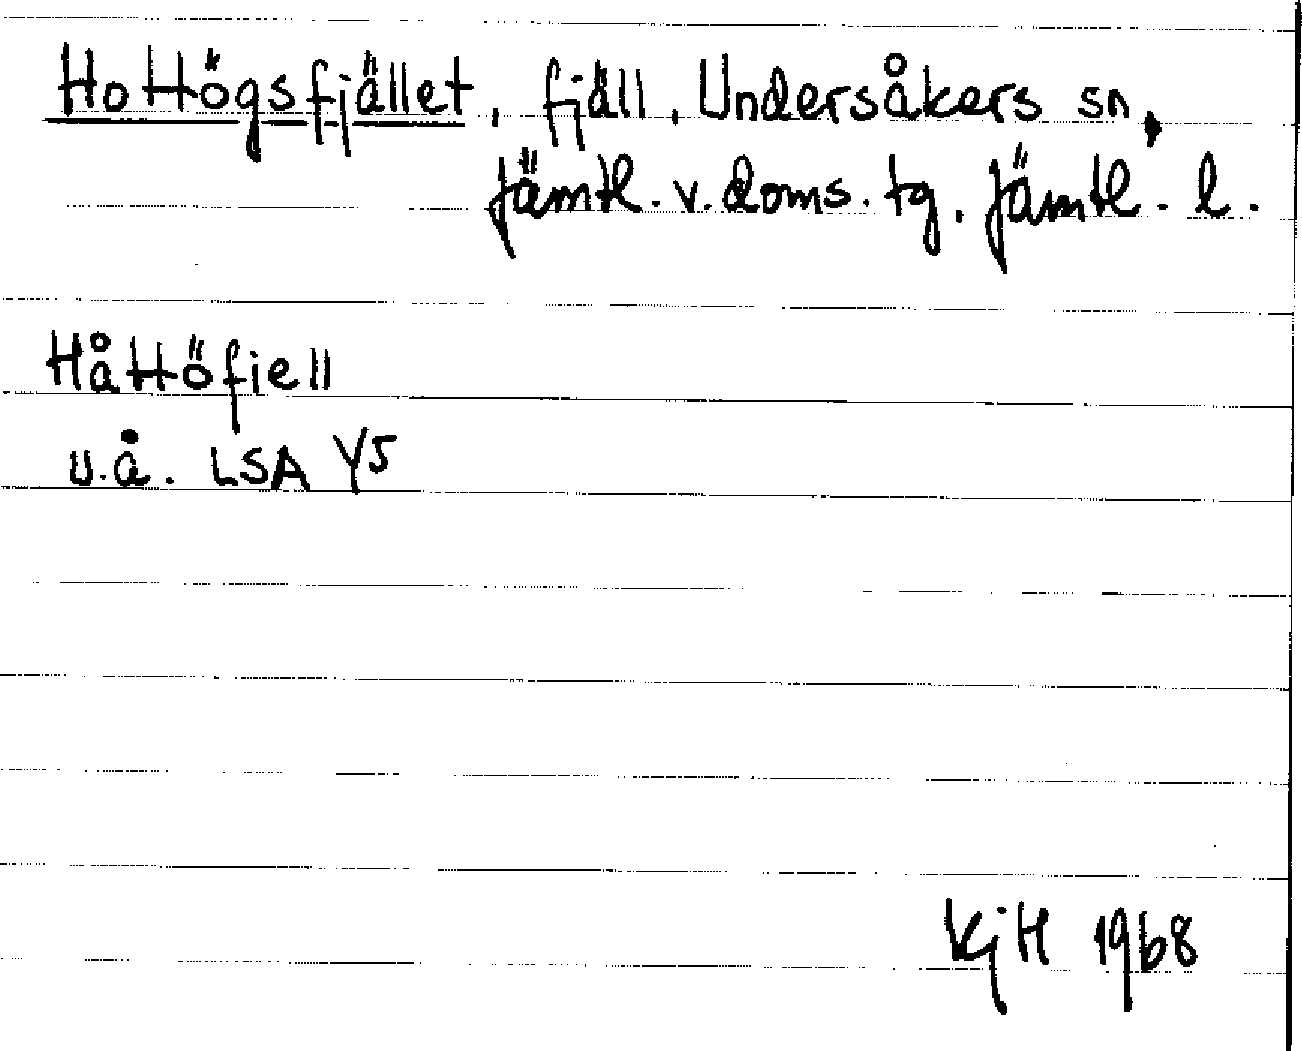 Hottögsfjället, fjäll, Undersåkers sn,
Jämtl. v. doms. tg, Jämtl. l.
Håttöfiell
u.å. LSA Y5
KjH 1968